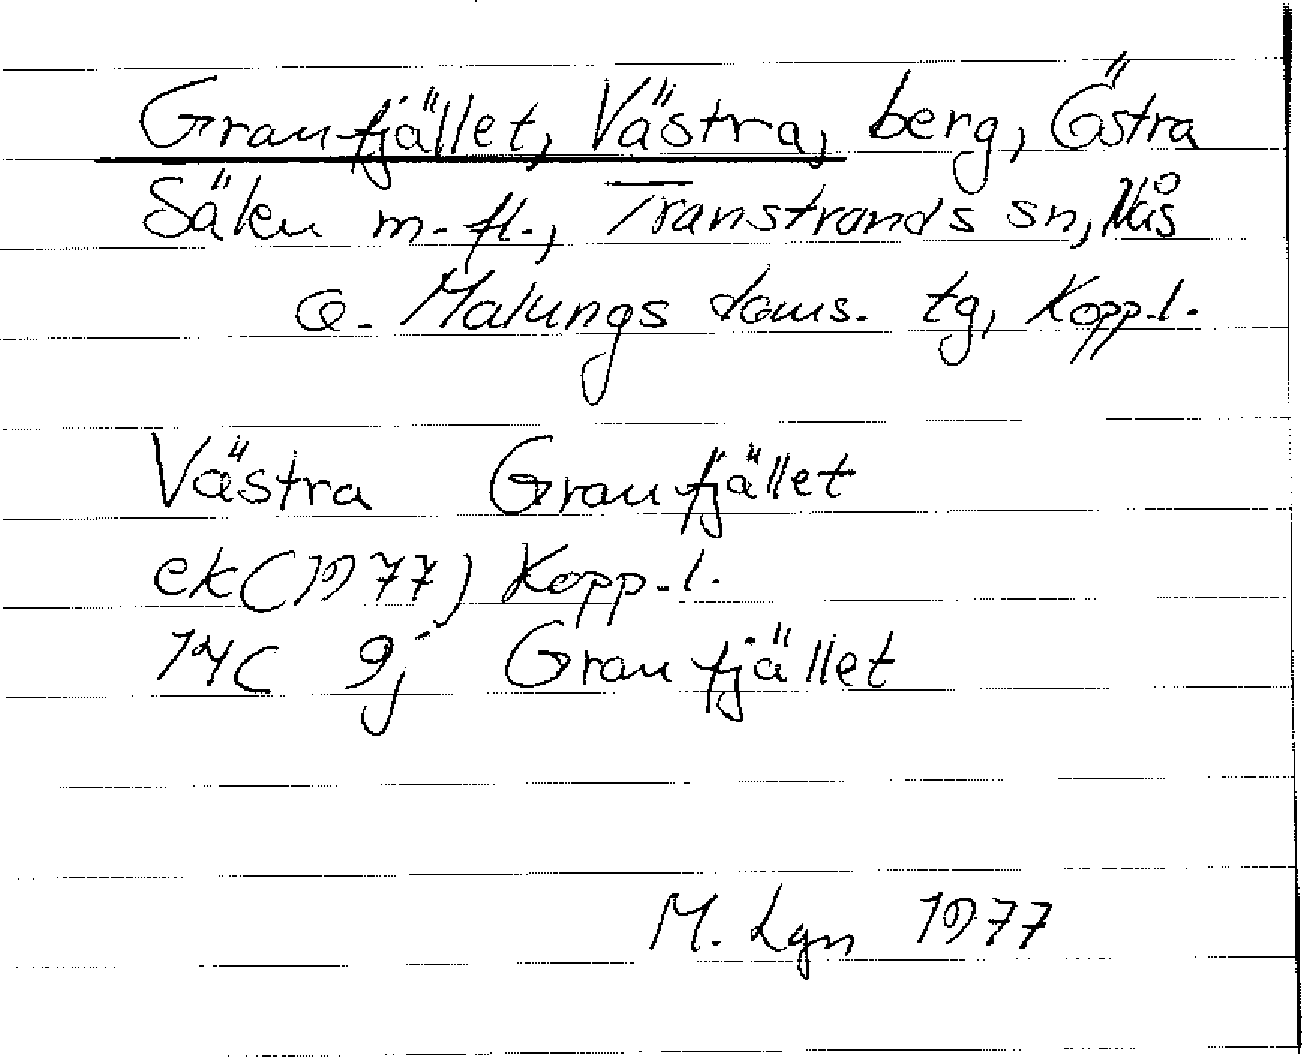 Granfjället, Västra, berg, Östra
Sälen m.fl., Transtrands sn, Nås
o. Malungs doms. tg, Kopp.l.
Västra Granfjället
ek(1977) Kopp.l.
14C 9j Granfjället
M. Lgn 1977